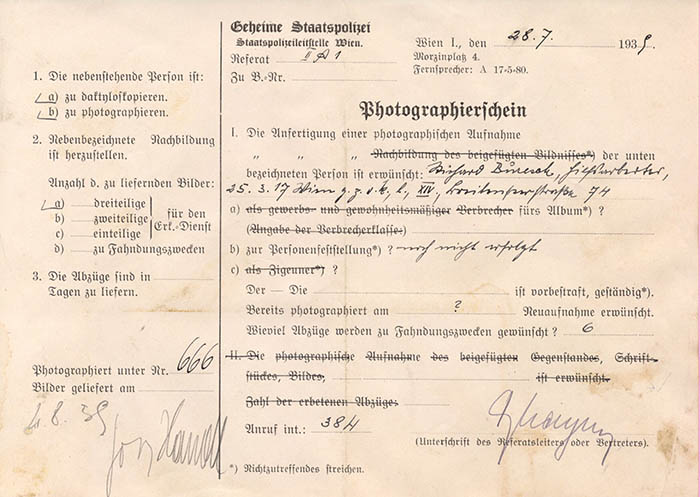 Geheime Staatspolizei
Staatspolizeileitstelle Wien.
Referat II A 1
Zu B.-Nr.
Wien I., den 28.7. 1939.
Morzinplatz 4.
Fernsprecher: A 17-5-80.
1. Die nebenstehende Person ist:
a) zu daktyloskopieren.
b) zu photographieren.
2. Nebenbezeichnete Nachbildung
ist herzustellen.
Anzahl d. zu liefernden Bilder:
a) dreiteilige
b) zweiteilige
c) einteilige
d) zu Fahndungszwecken
für den
Erk.-Dienst
3. Die Abzüge sind in
Tagen zu liefern.
Photographiert unter Nr. 666
Bilder geliefert am
4.8.39
Photographierschein
I. Die Anfertigung einer photographischen Aufnahme
" " " Nachbildung des beigefügten Bildnisses*) der unten
bezeichneten Person ist erwünscht: Richard
25.3.17 Wien g.z.v.k., l., XIV, 74
a) als gewerbs- und gewohnheitsmäßiger Verbrecher fürs Album*) ?
(Angabe der Verbrecherklasse:)
b) zur Personenfeststellung*) ? noch nicht erfolgt
c) als Zigeuner*) ?
Der — Die ist vorbestraft, geständig*).
Bereits photographiert am ? Neuaufnahme erwünscht.
Wieviel Abzüge werden zu Fahndungszwecken gewünscht ? 6
II. Die photographische Aufnahme des beigefügten Gegenstandes, Schrift-
stückes, Bildes, ist erwünscht.
Zahl der erbetenen Abzüge:
Anruf int.: 384
(Unterschrift des Referatsleiters oder Vertreters).
*) Nichtzutreffendes streichen.